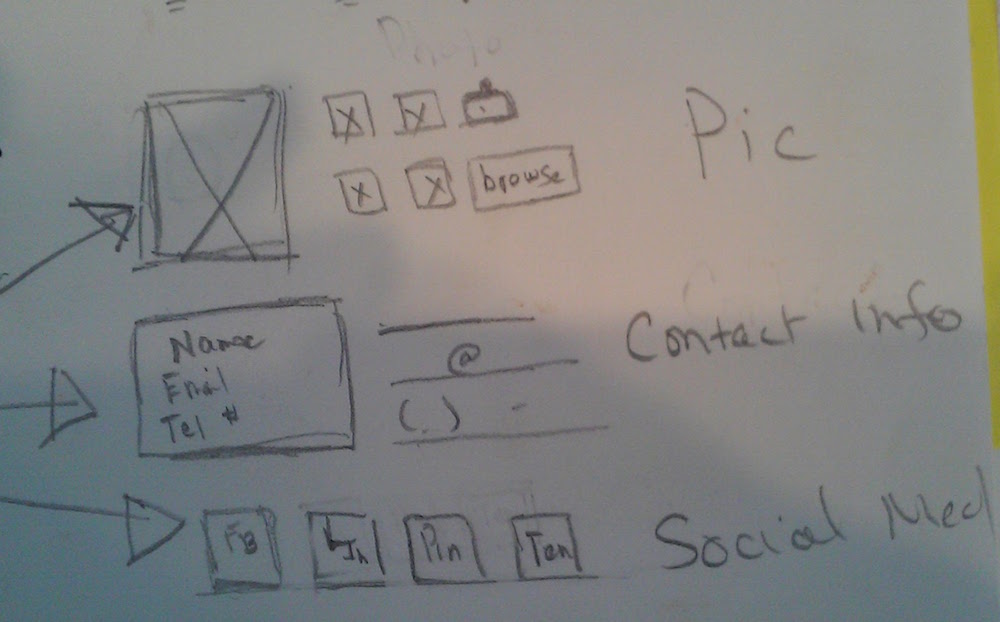 Photo
Pic
X X
X X browse
Name
Email
Tel #
@
( ) -
Contact info
FB LIn Pin Ten
Social Med